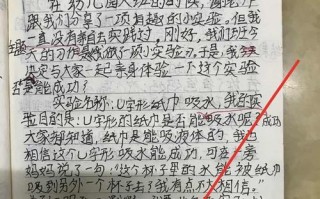 在幼儿园大班的时候,
跟我们分享了一项有趣的小实验。但我
一直没有亲自去实践过,刚好,我们今
天的 是做了项小实验,于是,我
与大家一起亲身体验一下这个实验
否能成功?
实验名称:U字形纸巾吸水,我的实
验目的是:U字形纸巾是否能吸水呢?成功
大家都知道,纸巾是能吸液体的,我也
相信这个U字形吸水能成功,可在一旁
妈妈说了一句:“这个杯子里的水能被纸巾
吸到另外一个杯子去?我有点不大相信。